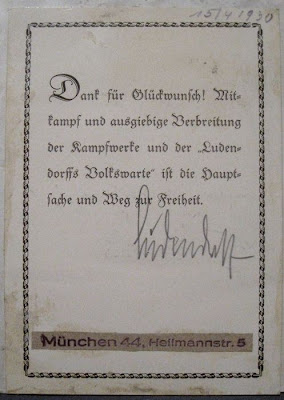 15/4 1930
Dank für Glückwunsch! Mit-
kampf und ausgiebige Verbreitung
der Kampfwerke und der „Luden-
dorffs Volkswarte" ist die Haupt-
sache und Weg zur Freiheit.
Ludendorff
München 44, Heilmannstr. 5